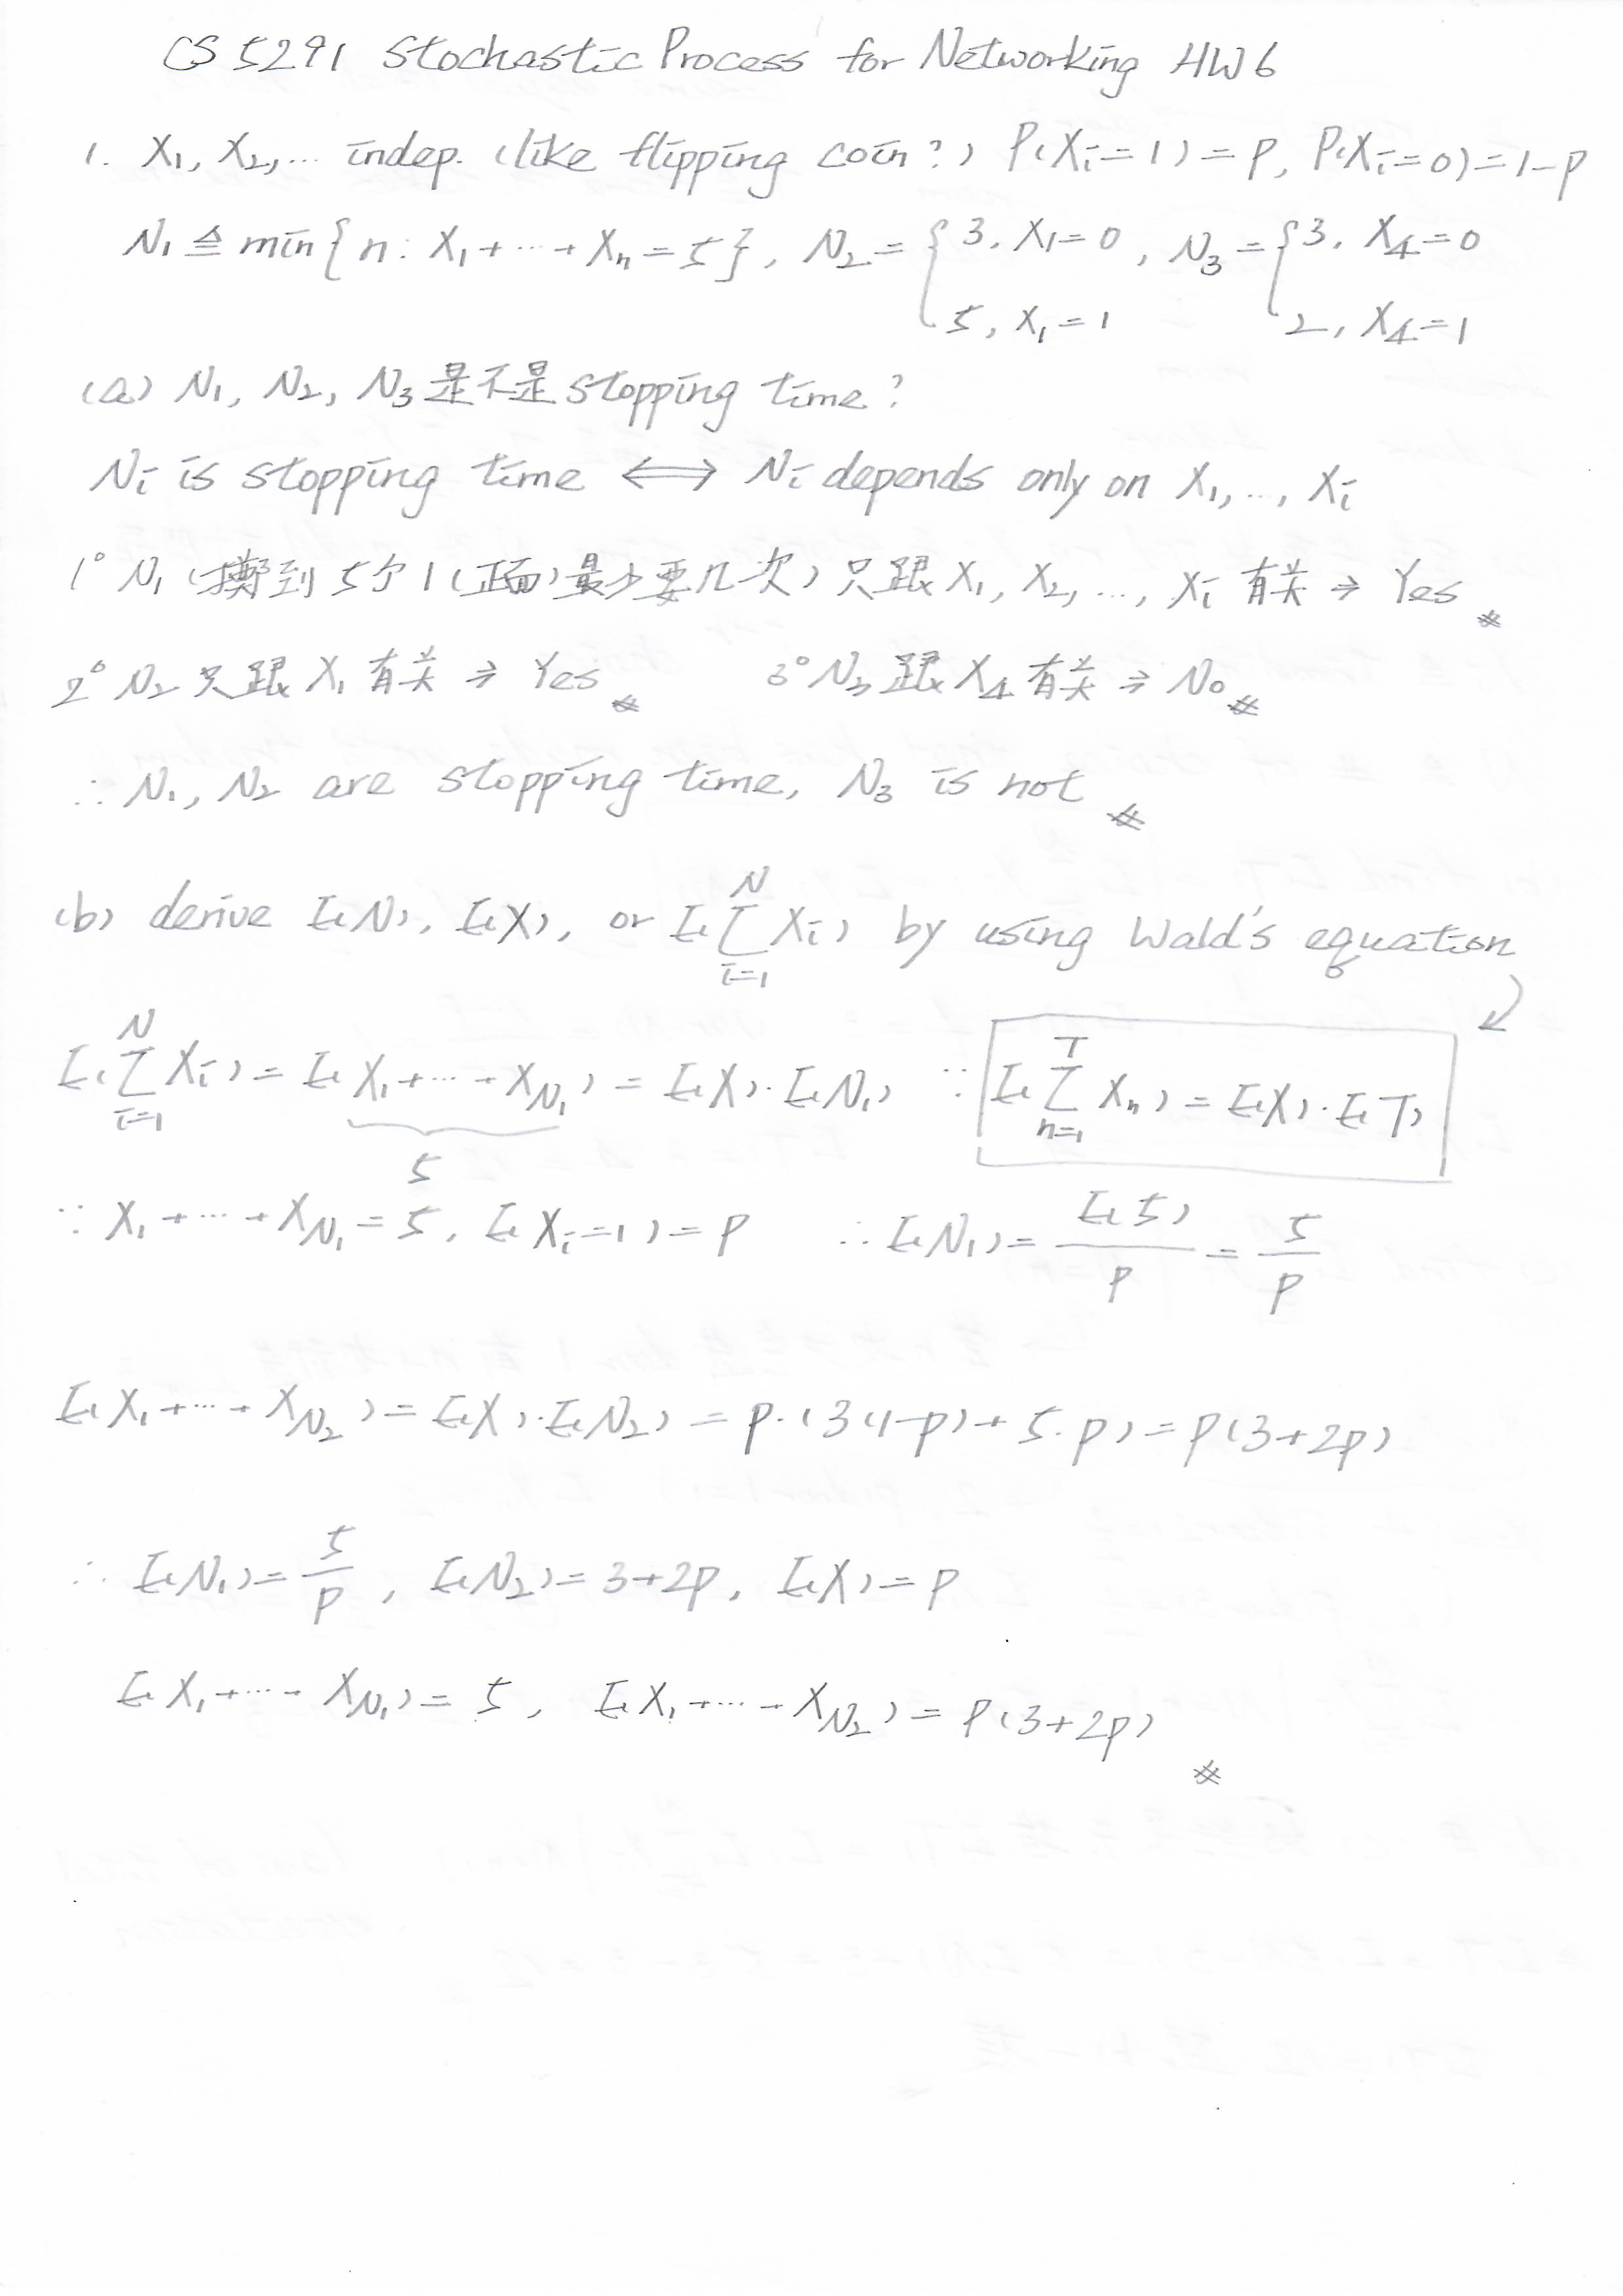 CS 5291 Stochastic Process for Networking HW6
1. X₁, X₂,... indep. (like flipping coin?) P(Xᵢ=1)=p, P(Xᵢ=0)=1-p
N₁ ≜ min{n: X₁+...+Xₙ=5}, N₂={3, X₁=0, N₃={3, X₄=0
5, X₁=1 2, X₄=1
(a) N₁, N₂, N₃是不是stopping time?
Nᵢ is stopping time ⟺ Nᵢ depends only on X₁, ..., Xᵢ
1° N₁(擲到5个1(正面)最少要几次)只跟X₁, X₂, ..., Xᵢ有关 → Yes #
2° N₂只跟X₁有关 → Yes # 3° N₃跟X₄有关 → No #
∴ N₁, N₂ are stopping time, N₃ is not #
(b) derive E(N), E(X), or E(∑ᵢ₌₁ᴺ Xᵢ) by using Wald's equation
E(∑ᵢ₌₁ᴺ Xᵢ) = E(X₁+...+X_N₁) = E(X)·E(N₁) ∵ E(∑ₙ₌₁ᵀ Xₙ) = E(X)·E(T)
5
∵ X₁+...+X_N₁=5, E(Xᵢ=1)=p ∴ E(N₁)=E(5)/p=5/p
E(X₁+...+X_N₂)=E(X)·E(N₂)=p·(3(1-p)+5·p)=p(3+2p)
∴ E(N₁)=5/p, E(N₂)=3+2p, E(X)=p
E(X₁+...+X_N₁)=5, E(X₁+...+X_N₂)=p(3+2p) #